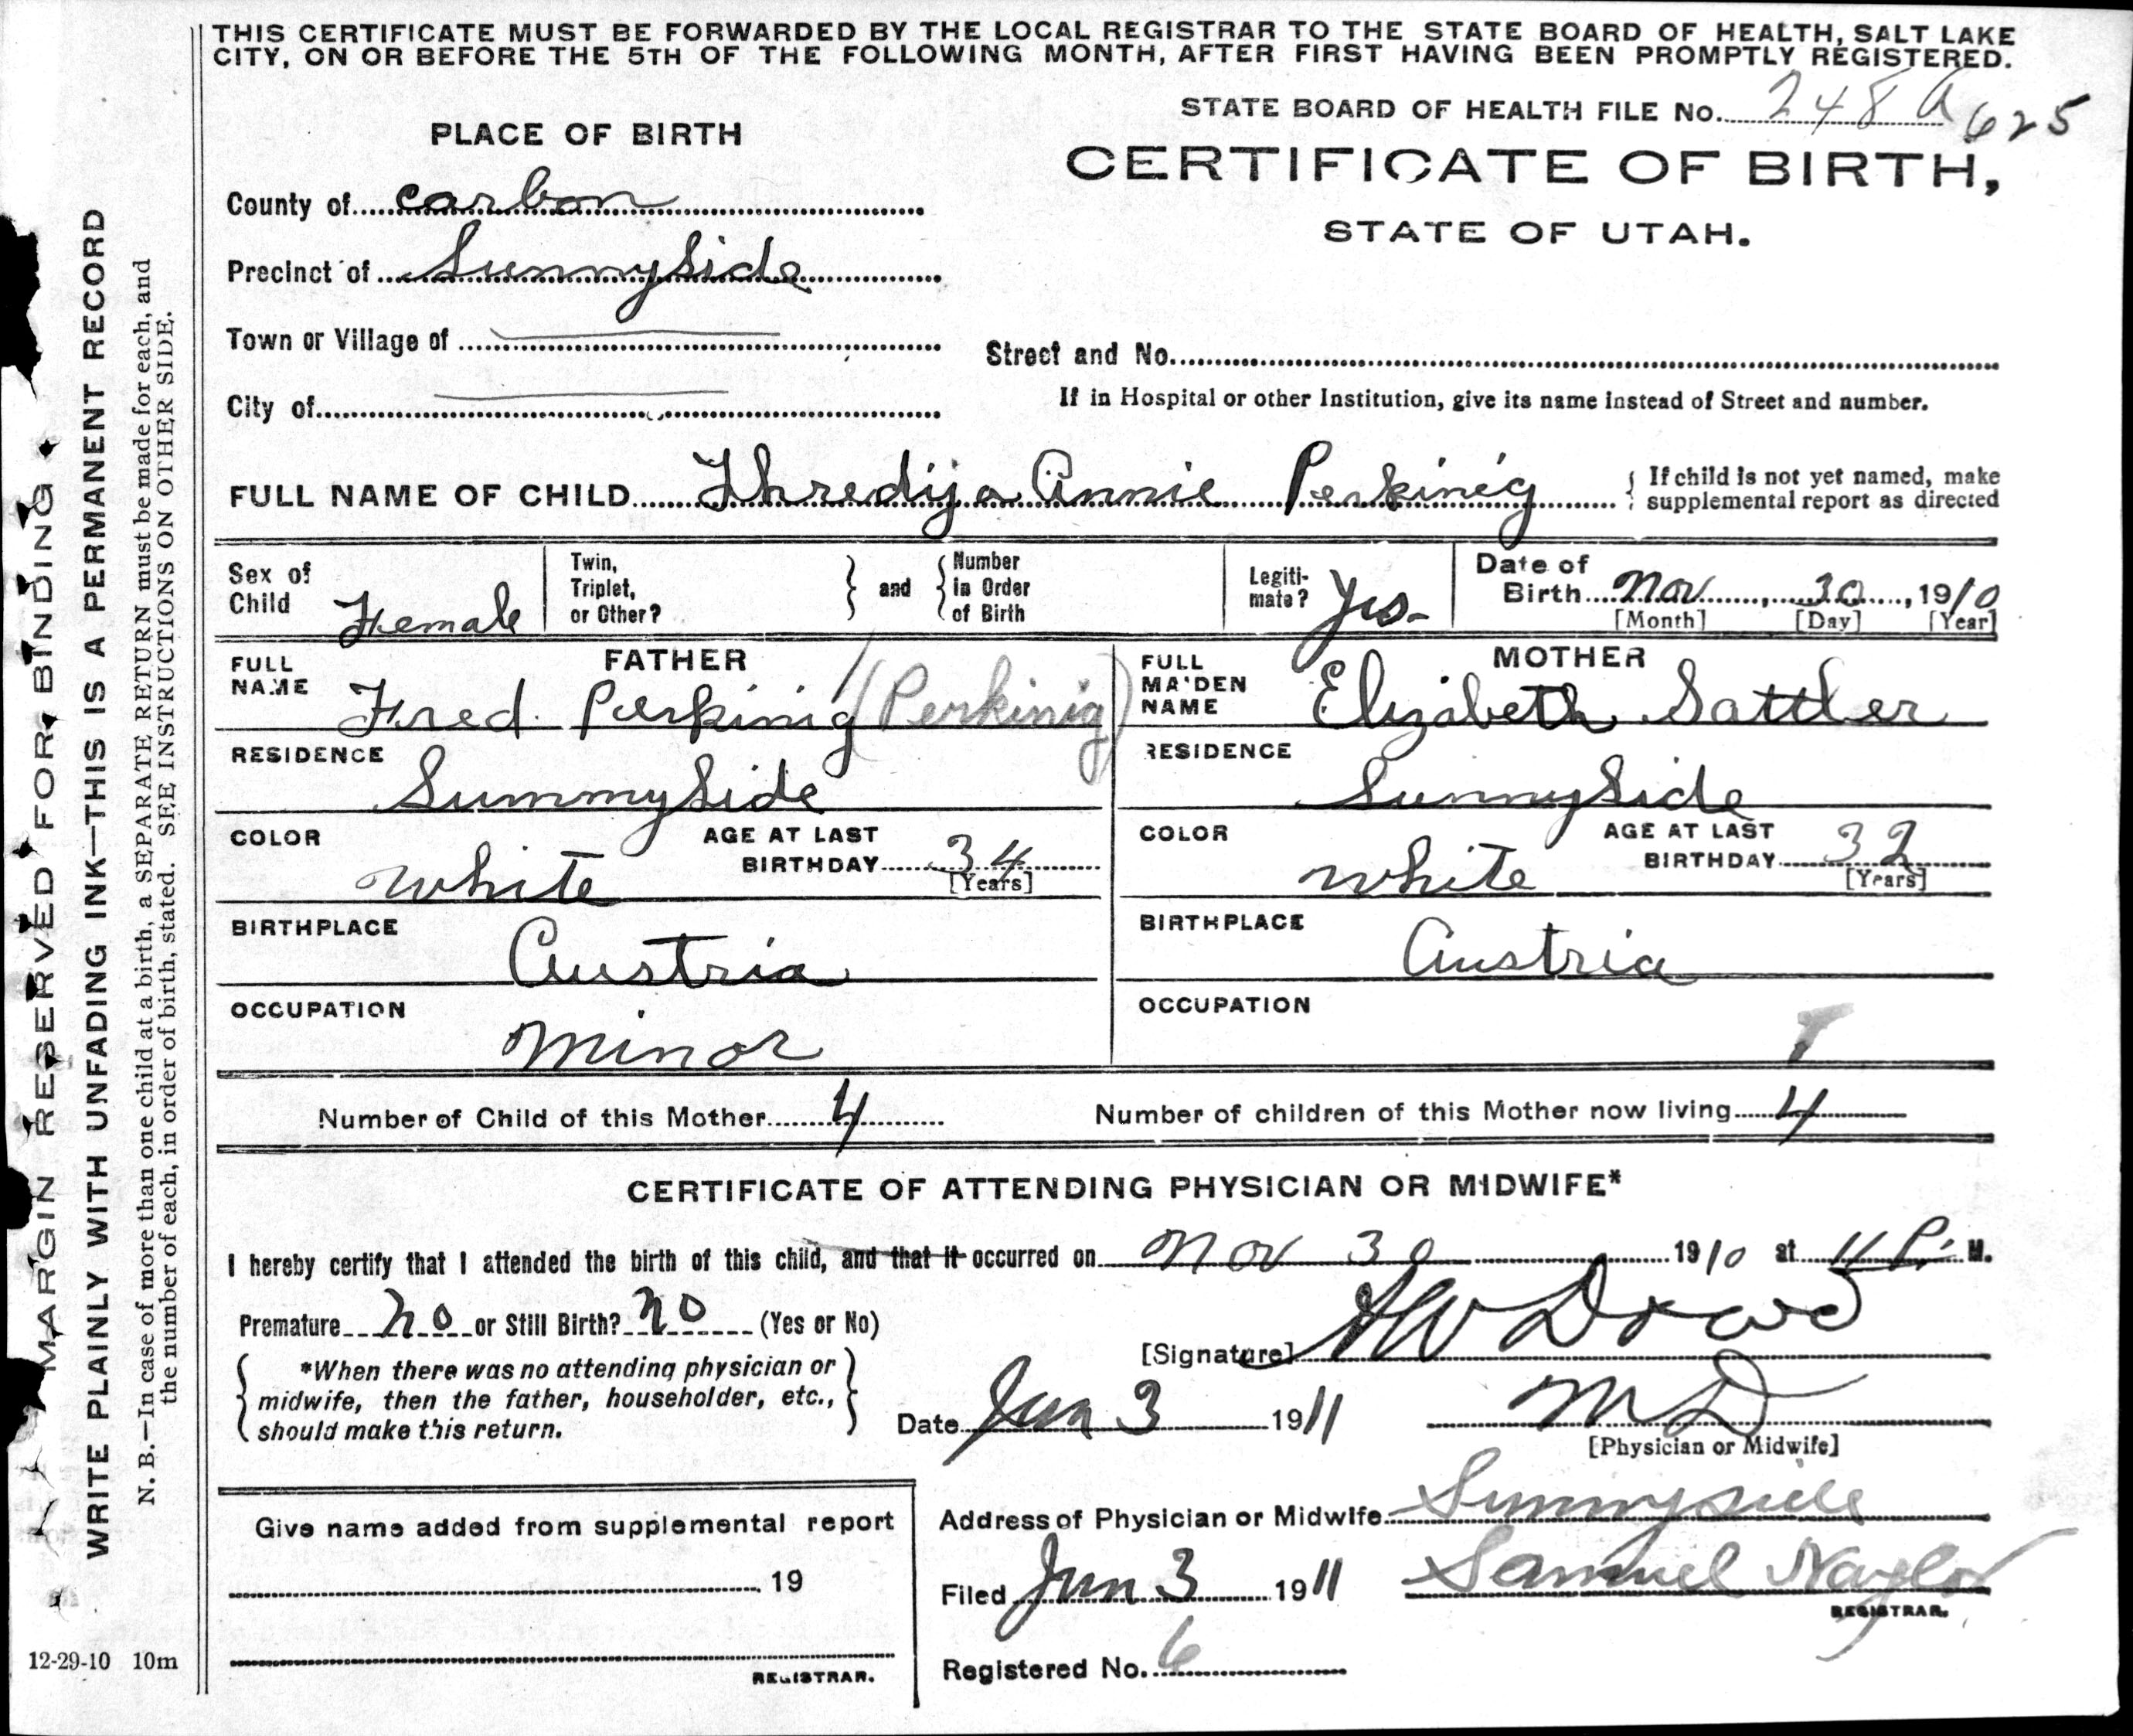 THIS CERTIFICATE MUST BE FORWARDED BY THE LOCAL REGISTRAR TO THE STATE BOARD OF HEALTH, SALT LAKE
CITY, ON OR BEFORE THE 5TH OF THE FOLLOWING MONTH, AFTER FIRST HAVING BEEN PROMPTLY REGISTERED.
STATE BOARD OF HEALTH FILE No. 248 a 625
PLACE OF BIRTH
CERTIFICATE OF BIRTH,
STATE OF UTAH.
County of carbon
Precinct of Sunnyside
Town or Village of
Street and No.
City of
If in Hospital or other Institution, give its name instead of Street and number.
FULL NAME OF CHILD Thredija Annie Perkinig
If child is not yet named, make
supplemental report as directed
Sex of Child Female
Twin, Triplet, or Other?
and
Number in Order of Birth
Legitimate? Yes-
Date of Birth Nov, 30, 1910
[Month] [Day] [Year]
FATHER
FULL NAME Fred Perkinig (Perkinig)
MOTHER
FULL MAIDEN NAME Elizabeth Sattler
RESIDENCE Sunnyside
RESIDENCE Sunnyside
COLOR white
AGE AT LAST BIRTHDAY 34
[Years]
COLOR white
AGE AT LAST BIRTHDAY 32
[Years]
BIRTHPLACE Austria
BIRTHPLACE Austria
OCCUPATION Minor
OCCUPATION
Number of Child of this Mother 4
Number of children of this Mother now living 4
CERTIFICATE OF ATTENDING PHYSICIAN OR MIDWIFE*
I hereby certify that I attended the birth of this child, and that it occurred on Nov 30 1910 at 11 P. M.
Premature no or Still Birth? no (Yes or No)
*When there was no attending physician or
midwife, then the father, householder, etc.,
should make this return.
[Signature]
Date Jan 3 1911
MD
[Physician or Midwife]
Give name added from supplemental report
19
REGISTRAR.
Address of Physician or Midwife Sunnyside
Filed Jan 3 1911 Samuel Naylor
REGISTRAR.
Registered No. 6
MARGIN RESERVED FOR BINDING
WRITE PLAINLY WITH UNFADING INK—THIS IS A PERMANENT RECORD
N. B.—In case of more than one child at a birth, a SEPARATE RETURN must be made for each, and
the number of each, in order of birth, stated. SEE INSTRUCTIONS ON OTHER SIDE.
12-29-10 10m